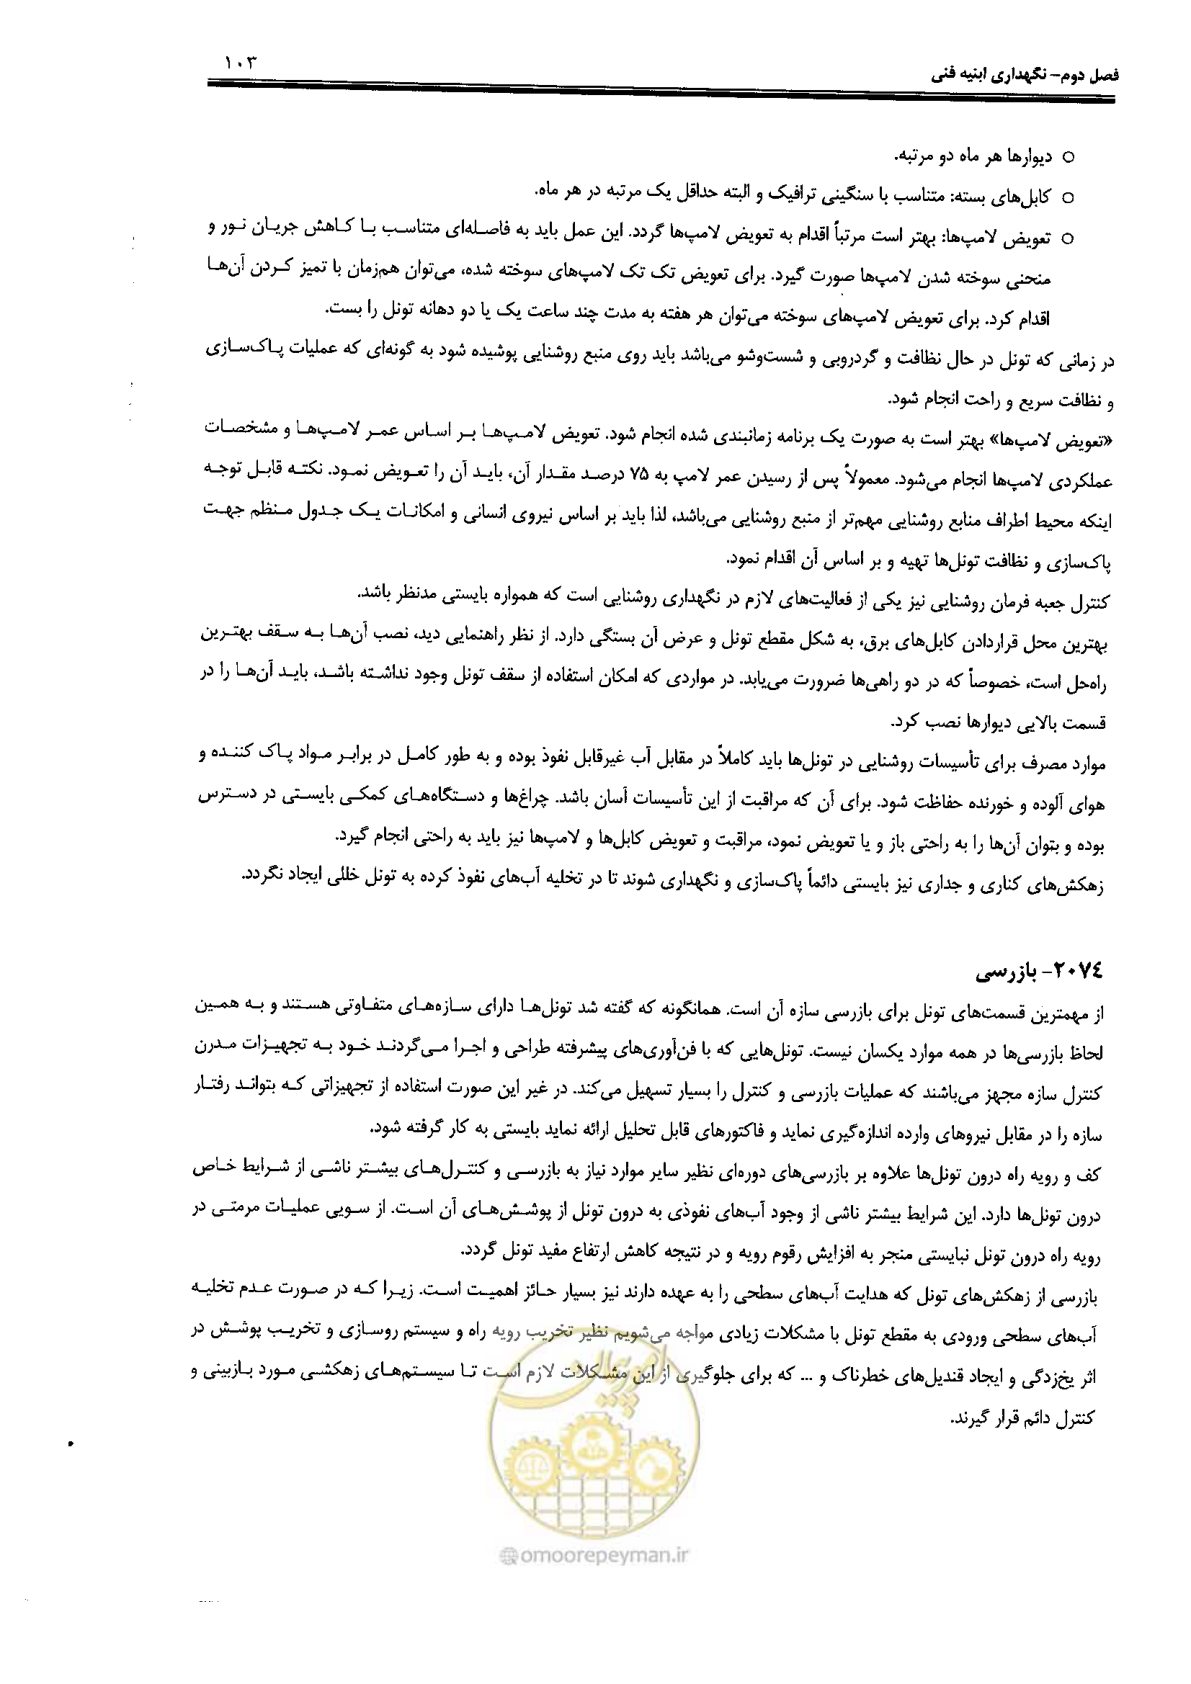 فصل دوم- نگهداری ابنیه فنی
۱۰۳
○ دیوارها هر ماه دو مرتبه.
○ کابل‌های بسته: متناسب با سنگینی ترافیک و البته حداقل یک مرتبه در هر ماه.
○ تعویض لامپ‌ها: بهتر است مرتباً اقدام به تعویض لامپ‌ها گردد. این عمل باید به فاصله‌ای متناسب با کاهش جریان نور و
منحنی سوخته شدن لامپ‌ها صورت گیرد. برای تعویض تک تک لامپ‌های سوخته شده، می‌توان همزمان با تمیز کردن آن‌ها
اقدام کرد. برای تعویض لامپ‌های سوخته می‌توان هر هفته به مدت چند ساعت یک یا دو دهانه تونل را بست.
در زمانی که تونل در حال نظافت و گردروبی و شست‌وشو می‌باشد باید روی منبع روشنایی پوشیده شود به گونه‌ای که عملیات پاک‌سازی
و نظافت سریع و راحت انجام شود.
«تعویض لامپ‌ها» بهتر است به صورت یک برنامه زمانبندی شده انجام شود. تعویض لامپ‌ها بر اساس عمر لامپ‌ها و مشخصات
عملکردی لامپ‌ها انجام می‌شود. معمولاً پس از رسیدن عمر لامپ به ۷۵ درصد مقدار آن، باید آن را تعویض نمود. نکته قابل توجه
اینکه محیط اطراف منابع روشنایی مهم‌تر از منبع روشنایی می‌باشد، لذا باید بر اساس نیروی انسانی و امکانات یک جدول منظم جهت
پاک‌سازی و نظافت تونل‌ها تهیه و بر اساس آن اقدام نمود.
کنترل جعبه فرمان روشنایی نیز یکی از فعالیت‌های لازم در نگهداری روشنایی است که همواره بایستی مدنظر باشد.
بهترین محل قراردادن کابل‌های برق، به شکل مقطع تونل و عرض آن بستگی دارد. از نظر راهنمایی دید، نصب آن‌ها به سقف بهترین
راه‌حل است، خصوصاً که در دو راهی‌ها ضرورت می‌یابد. در مواردی که امکان استفاده از سقف تونل وجود نداشته باشد، باید آن‌ها را در
قسمت بالایی دیوارها نصب کرد.
موارد مصرف برای تأسیسات روشنایی در تونل‌ها باید کاملاً در مقابل آب غیرقابل نفوذ بوده و به طور کامل در برابر مواد پاک کننده و
هوای آلوده و خورنده حفاظت شود. برای آن که مراقبت از این تأسیسات آسان باشد. چراغ‌ها و دستگاه‌های کمکی بایستی در دسترس
بوده و بتوان آن‌ها را به راحتی باز و یا تعویض نمود، مراقبت و تعویض کابل‌ها و لامپ‌ها نیز باید به راحتی انجام گیرد.
زهکش‌های کناری و جداری نیز بایستی دائماً پاک‌سازی و نگهداری شوند تا در تخلیه آب‌های نفوذ کرده به تونل خللی ایجاد نگردد.
۲۰۷٤- بازرسی
از مهمترین قسمت‌های تونل برای بازرسی سازه آن است. همانگونه که گفته شد تونل‌ها دارای سازه‌های متفاوتی هستند و به همین
لحاظ بازرسی‌ها در همه موارد یکسان نیست. تونل‌هایی که با فن‌آوری‌های پیشرفته طراحی و اجرا می‌گردند خود به تجهیزات مدرن
کنترل سازه مجهز می‌باشند که عملیات بازرسی و کنترل را بسیار تسهیل می‌کند. در غیر این صورت استفاده از تجهیزاتی که بتواند رفتار
سازه را در مقابل نیروهای وارده اندازه‌گیری نماید و فاکتورهای قابل تحلیل ارائه نماید بایستی به کار گرفته شود.
کف و رویه راه درون تونل‌ها علاوه بر بازرسی‌های دوره‌ای نظیر سایر موارد نیاز به بازرسی و کنترل‌های بیشتر ناشی از شرایط خاص
درون تونل‌ها دارد. این شرایط بیشتر ناشی از وجود آب‌های نفوذی به درون تونل از پوشش‌های آن است. از سویی عملیات مرمتی در
رویه راه درون تونل نبایستی منجر به افزایش رقوم رویه و در نتیجه کاهش ارتفاع مفید تونل گردد.
بازرسی از زهکش‌های تونل که هدایت آب‌های سطحی را به عهده دارند نیز بسیار حائز اهمیت است. زیرا که در صورت عدم تخلیه
آب‌های سطحی ورودی به مقطع تونل با مشکلات زیادی مواجه می‌شویم نظیر تخریب رویه راه و سیستم روسازی و تخریب پوشش در
اثر یخ‌زدگی و ایجاد قندیل‌های خطرناک و ... که برای جلوگیری از این مشکلات لازم است تا سیستم‌های زهکشی مورد بازبینی و
کنترل دائم قرار گیرند.
امور پیمان
@omoorepeyman.ir